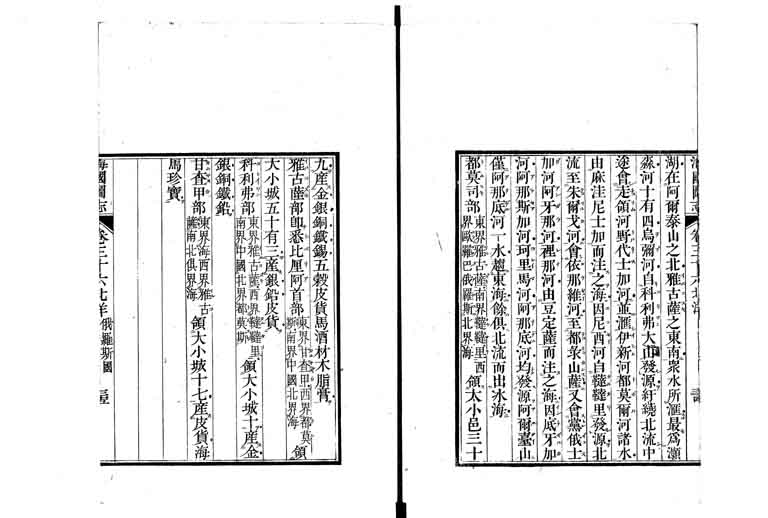 湖在阿爾泰山之北雅古薩之東南衆水所滙最爲灝
淼河十有四烏彌河自科利弗大山發源紆繞北流中
途會走領河野代士加河並滙伊新河都莫爾河諸水
由麻洼尼士加而注之海因尼西河自韃韃里發源北
流至朱爾戈河會依那維河至都彔山薩又會蒸俄士
加河阿牙那河裡那河由豆定薩而注之海因底牙加
河阿那斯加河珂里馬河阿那底河均發源阿爾臺山
僅阿那底河一水趨東海餘俱北流而出氷海
都莫司部東界雅古薩南界韃韃里西界歐羅巴俄羅斯北界海領大小邑三十
九產金銀銅鐵錫五穀皮貨馬酒材木脂膏
雅古薩部卽悉比厘阿首部東界甘查甲西界都莫斯南界中國北界海領
大小城五十有三產銀鉛皮貨
科利弗部東界雅古薩西界韃韃里南界中國北界都莫斯領大小城十產金
銀銅鐵鉛
甘查甲部東界海西界雅古薩南北俱界海領大小城十七產皮貨海
馬珍寶
海國圖志
卷三十六北洋俄羅斯國